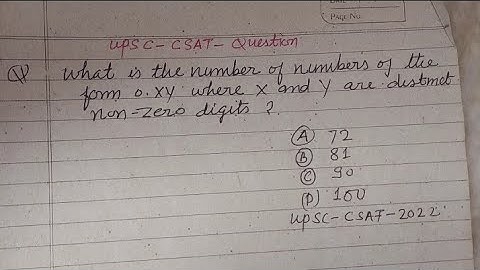 PAGE NO.
UPSC - CSAT - Question
Q What is the number of numbers of the
form 0.XY where X and Y are distinct
non-zero digits ?
(A) 72
(B) 81
(C) 90
(D) 100
UPSC - CSAT - 2022